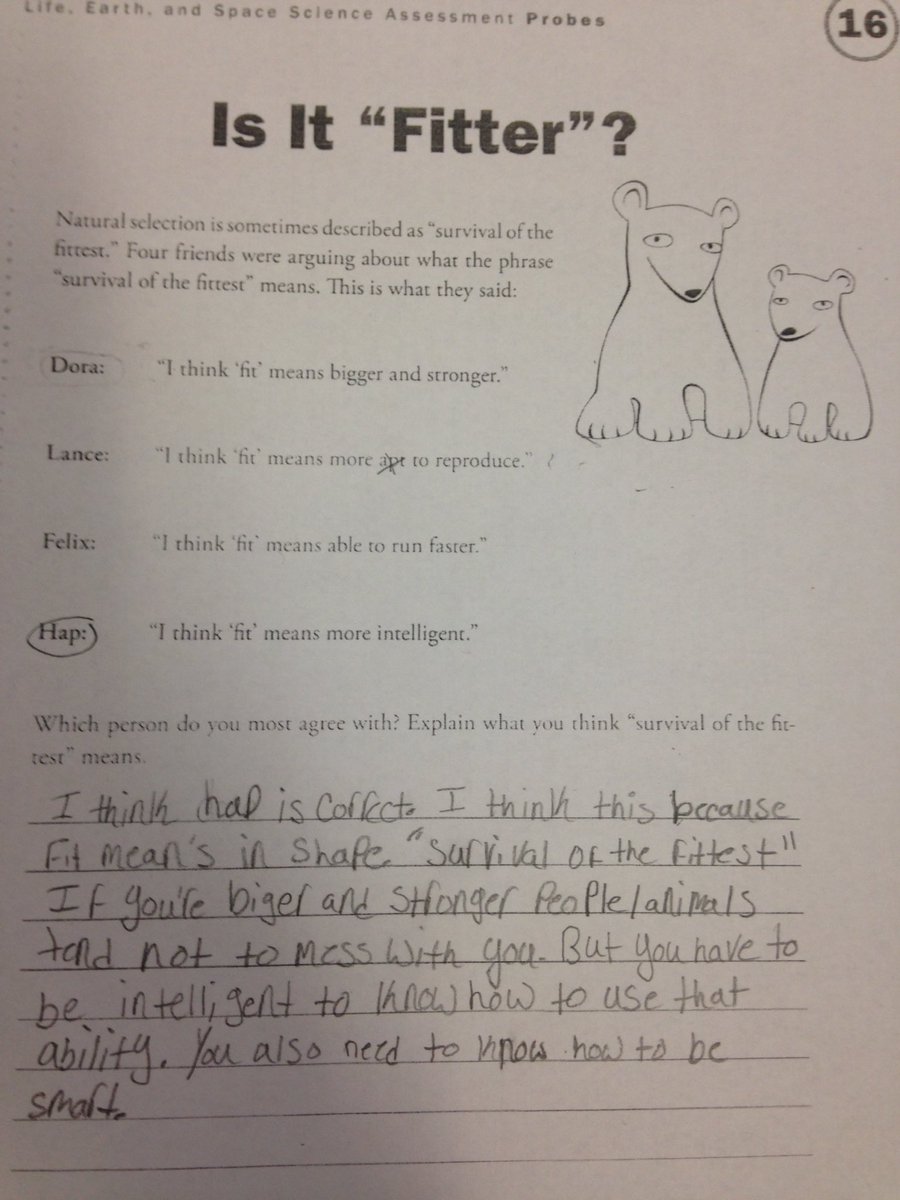 Life, Earth, and Space Science Assessment Probes
16
Is It “Fitter”?
Natural selection is sometimes described as “survival of the
fittest.” Four friends were arguing about what the phrase
“survival of the fittest” means. This is what they said:
Dora: “I think ‘fit’ means bigger and stronger.”
Lance: “I think ‘fit’ means more apt to reproduce.” ?
Felix: “I think ‘fit’ means able to run faster.”
Hap: “I think ‘fit’ means more intelligent.”
Which person do you most agree with? Explain what you think “survival of the fit-
test” means.
I think hap is correct. I think this because
Fit mean's in shape. "Survival of the Fittest"
If you're biger and stronger People/animals
tend not to mess with you. But you have to
be intelligent to know how to use that
ability. You also need to know how to be
smart.